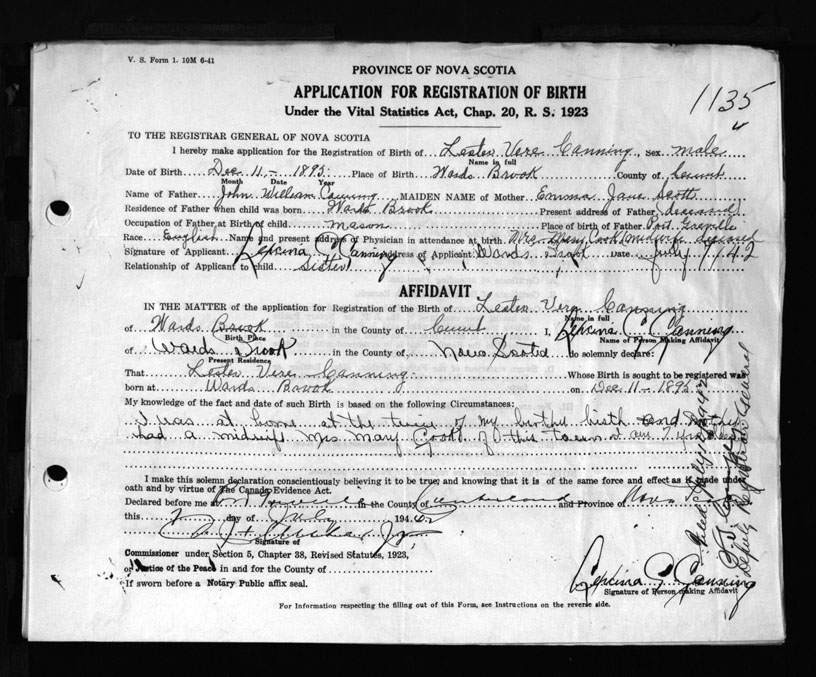 V. S. Form 1. 10M 6-41
PROVINCE OF NOVA SCOTIA
APPLICATION FOR REGISTRATION OF BIRTH
Under the Vital Statistics Act, Chap. 20, R. S. 1923
1135
TO THE REGISTRAR GENERAL OF NOVA SCOTIA
I hereby make application for the Registration of Birth of Lester Vere Canning, Sex male
Name in full
Date of Birth Dec 11 - 1895 Place of Birth Wards Brook County of
Month Date Year
Name of Father John William Canning MAIDEN NAME of Mother Emma Jane Scott
Residence of Father when child was born Wards Brook Present address of Father deceased
Occupation of Father at Birth of child mason Place of birth of Father Port Greville
Race English Name and present address of Physician in attendance at birth Mrs. Mary Cook midwife deceased
Signature of Applicant Canning Address of Applicant Wards Brook Date July 7/42
Relationship of Applicant to child Sister
AFFIDAVIT
IN THE MATTER of the application for Registration of the Birth of Lester Vere Canning
Name in full
of Wards Brook in the County of I, Canning
Birth Place Name of Person Making Affidavit
of Wards Brook in the County of Nova Scotia do solemnly declare:
Present Residence
That Lester Vere Canning Whose Birth is sought to be registered was
born at Wards Brook on Dec 11 - 1895
My knowledge of the fact and date of such Birth is based on the following Circumstances:
I was at home at the time of my birth and mother
had a midwife Mrs Mary Cook of this town
I make this solemn declaration conscientiously believing it to be true, and knowing that it is of the same force and effect as if made under
oath and by virtue of The Canada Evidence Act.
Declared before me in the County of Cumberland and Province of Nova
this 7 day of July 1942
Signature of
Commissioner under Section 5, Chapter 38, Revised Statutes, 1923,
or Justice of the Peace in and for the County of
If sworn before a Notary Public affix seal.
Canning
Signature of Person making Affidavit
For Information respecting the filling out of this Form, see Instructions on the reverse side.
Deputy Registrar General